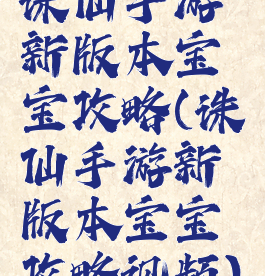 诛仙手游
新版本宝
宝攻略(诛
仙手游新
版本宝宝
攻略视频)